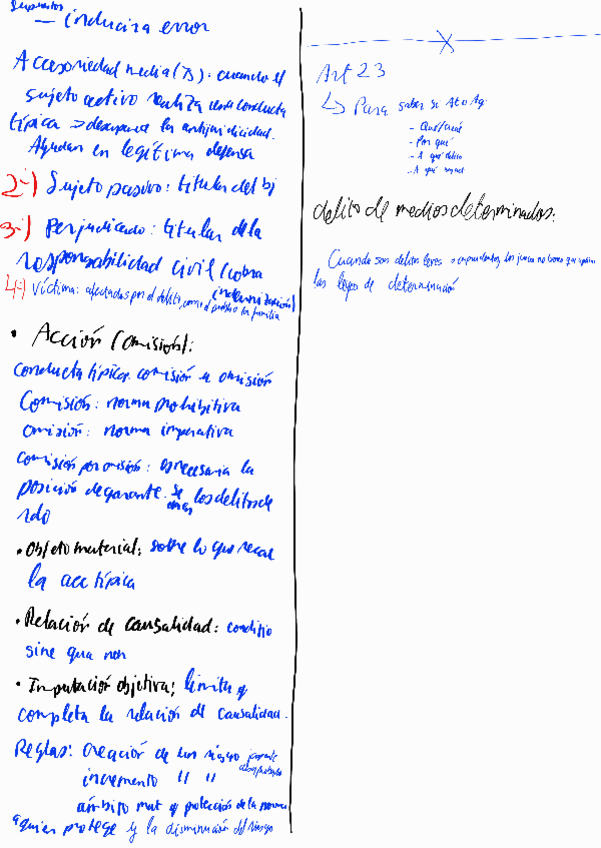 Supuestos
— inducir a error
Accesoriedad media (TS): cuando el
sujeto activo realiza una conducta
típica → desaparece la antijuricidad.
Ayudan en legítima defensa
2-) Sujeto pasivo: titular del bj
3-) Perjudicado: titular de la
responsabilidad civil (cobra
indemnización)
4-) Víctima: afectados por el delito, como el público la familia
• Acción (omisión):
conducta típica. comisión u omisión
Comisión: norma prohibitiva
omisión: norma imperativa
comisión por omisión: es necesaria la
posición de garante. se los delitos de
rdo
• Objeto material: sobre lo que recae
la acc típica
• Relación de causalidad: conditio
sine qua non
• Imputación objetiva: limita y
completa la relación de causalidad.
Reglas: creación de un riesgo
incremento " "
ámbito mat y protección de la norma
a quien protege y la disminución del riesgo
Art 23
↳ Para saber si At o Ag:
- Por qué
- A qué delito
- A qué
delito de medios determinados:
Cuando son delitos leves o imprudentes, los jueces no tienen que
las leyes de determinación